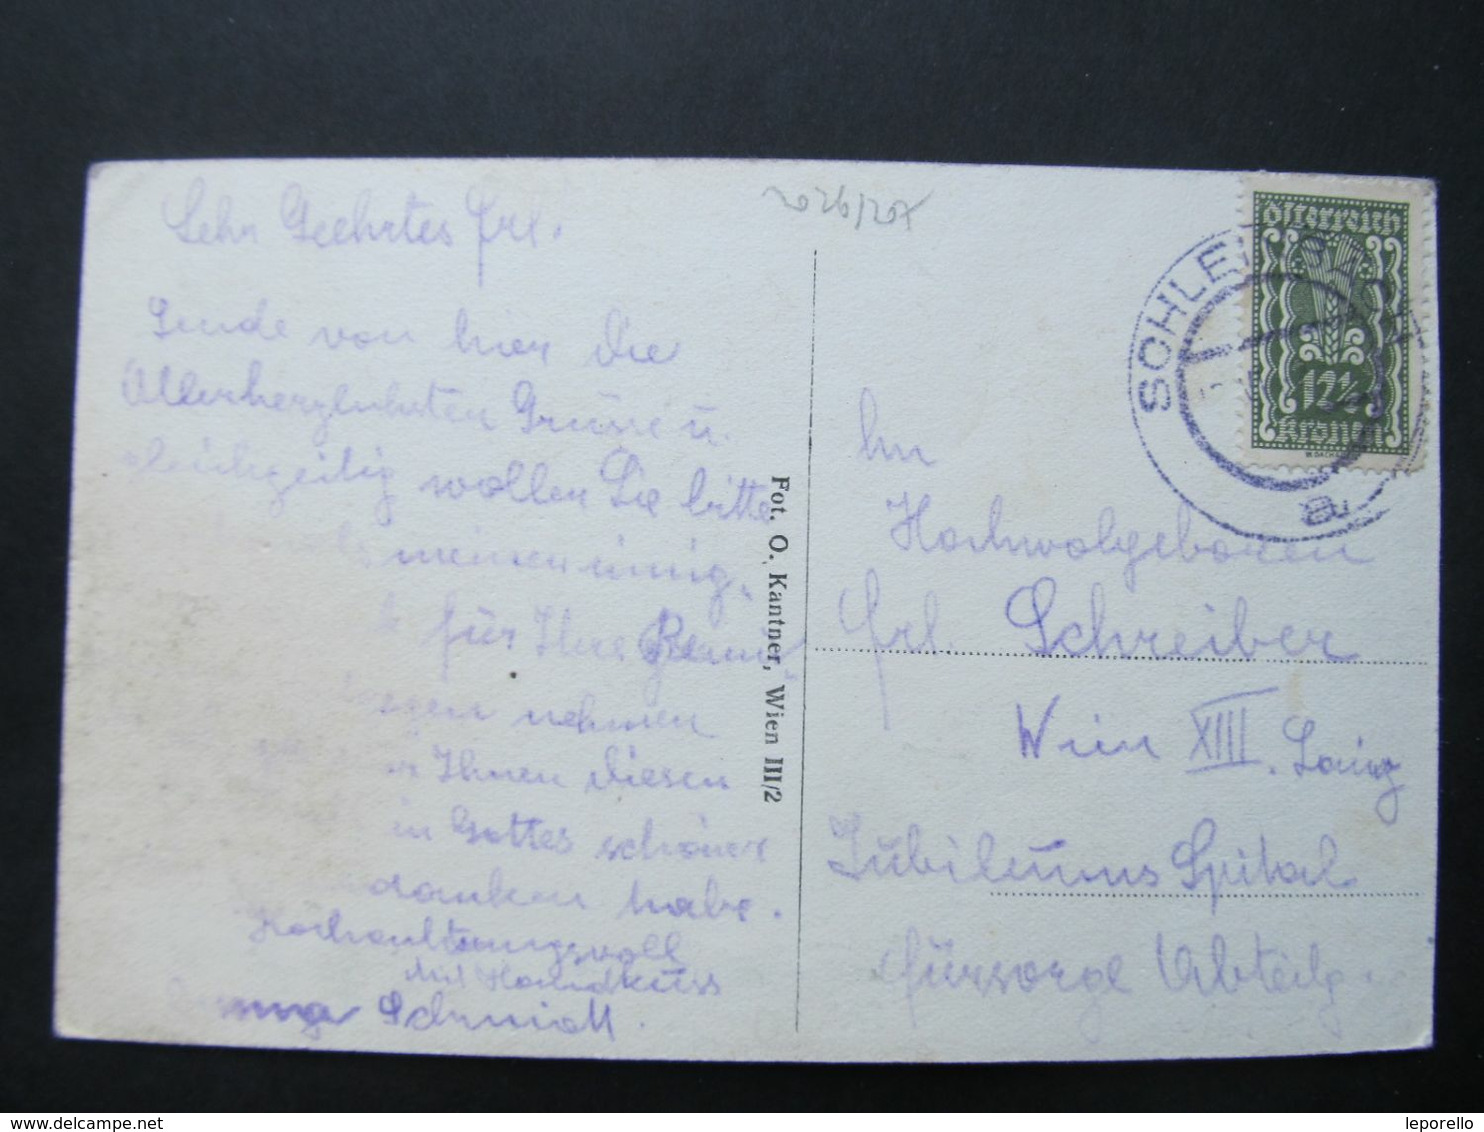 2026/207
Sehr Geehrtes Frl.
Sende von hier die
Allerherzlichsten Grüsse u.
gleichzeitig wollen Sie bitte
meinen innig.
für Ihre
nehmen
Ihnen diesen
in Gottes schöner
danken habe.
Hochachtungsvoll
Mit Handkuss
Schmidt.
Fot. O. Kantner, Wien III/2
SCHLEI
a
Österreich
12½
Kronen
An
Hochwohlgeboren
Frl. Schreiber
Wien XIII. Lainz
Jubileums Spital
Fürsorge Abteilg.
leporello